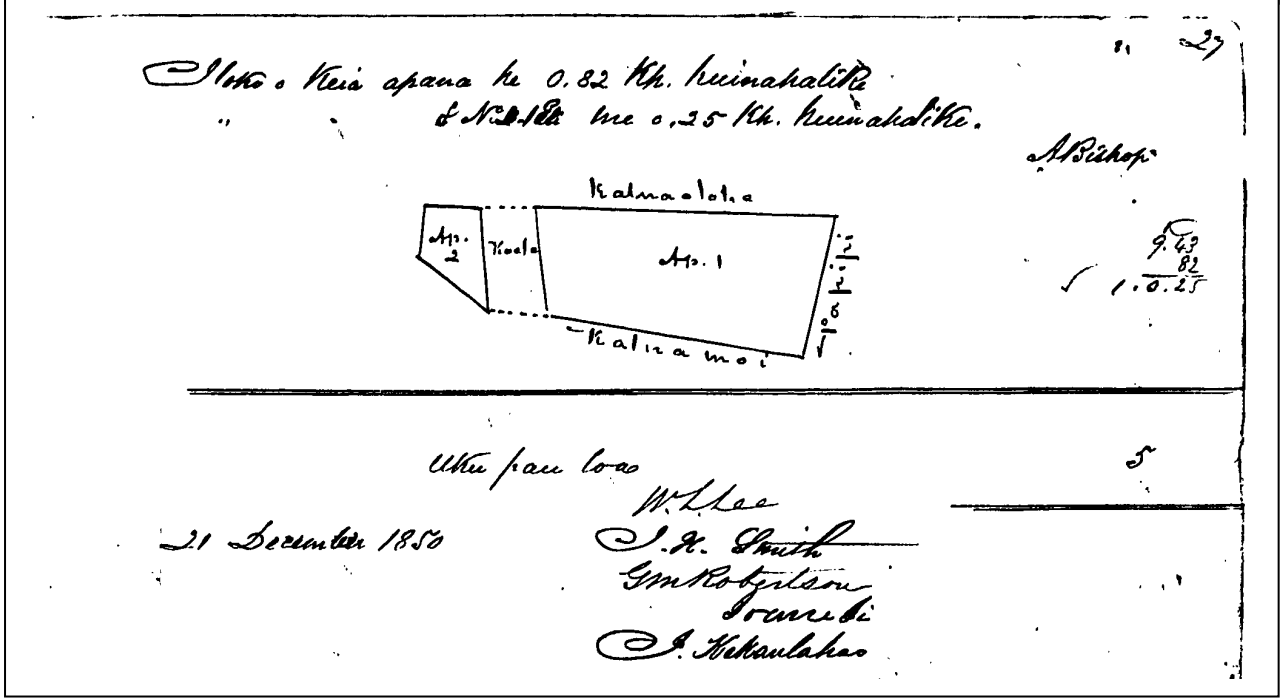 27
Iloko o Keia apana he 0.82 Kh. huinahalike
" " & No. me 0.25 Kh. huinahalike.
A Bishop
Kalnaoloha
Ap. 2
Ap. 1
Papipi
Kalnamoi
9.43
82
1.0.25
Uku pau loa 5
W. L. Lee
21 December 1850 J. H. Smith
G M Robertson
Ioane Ii
J. Kekaulahao